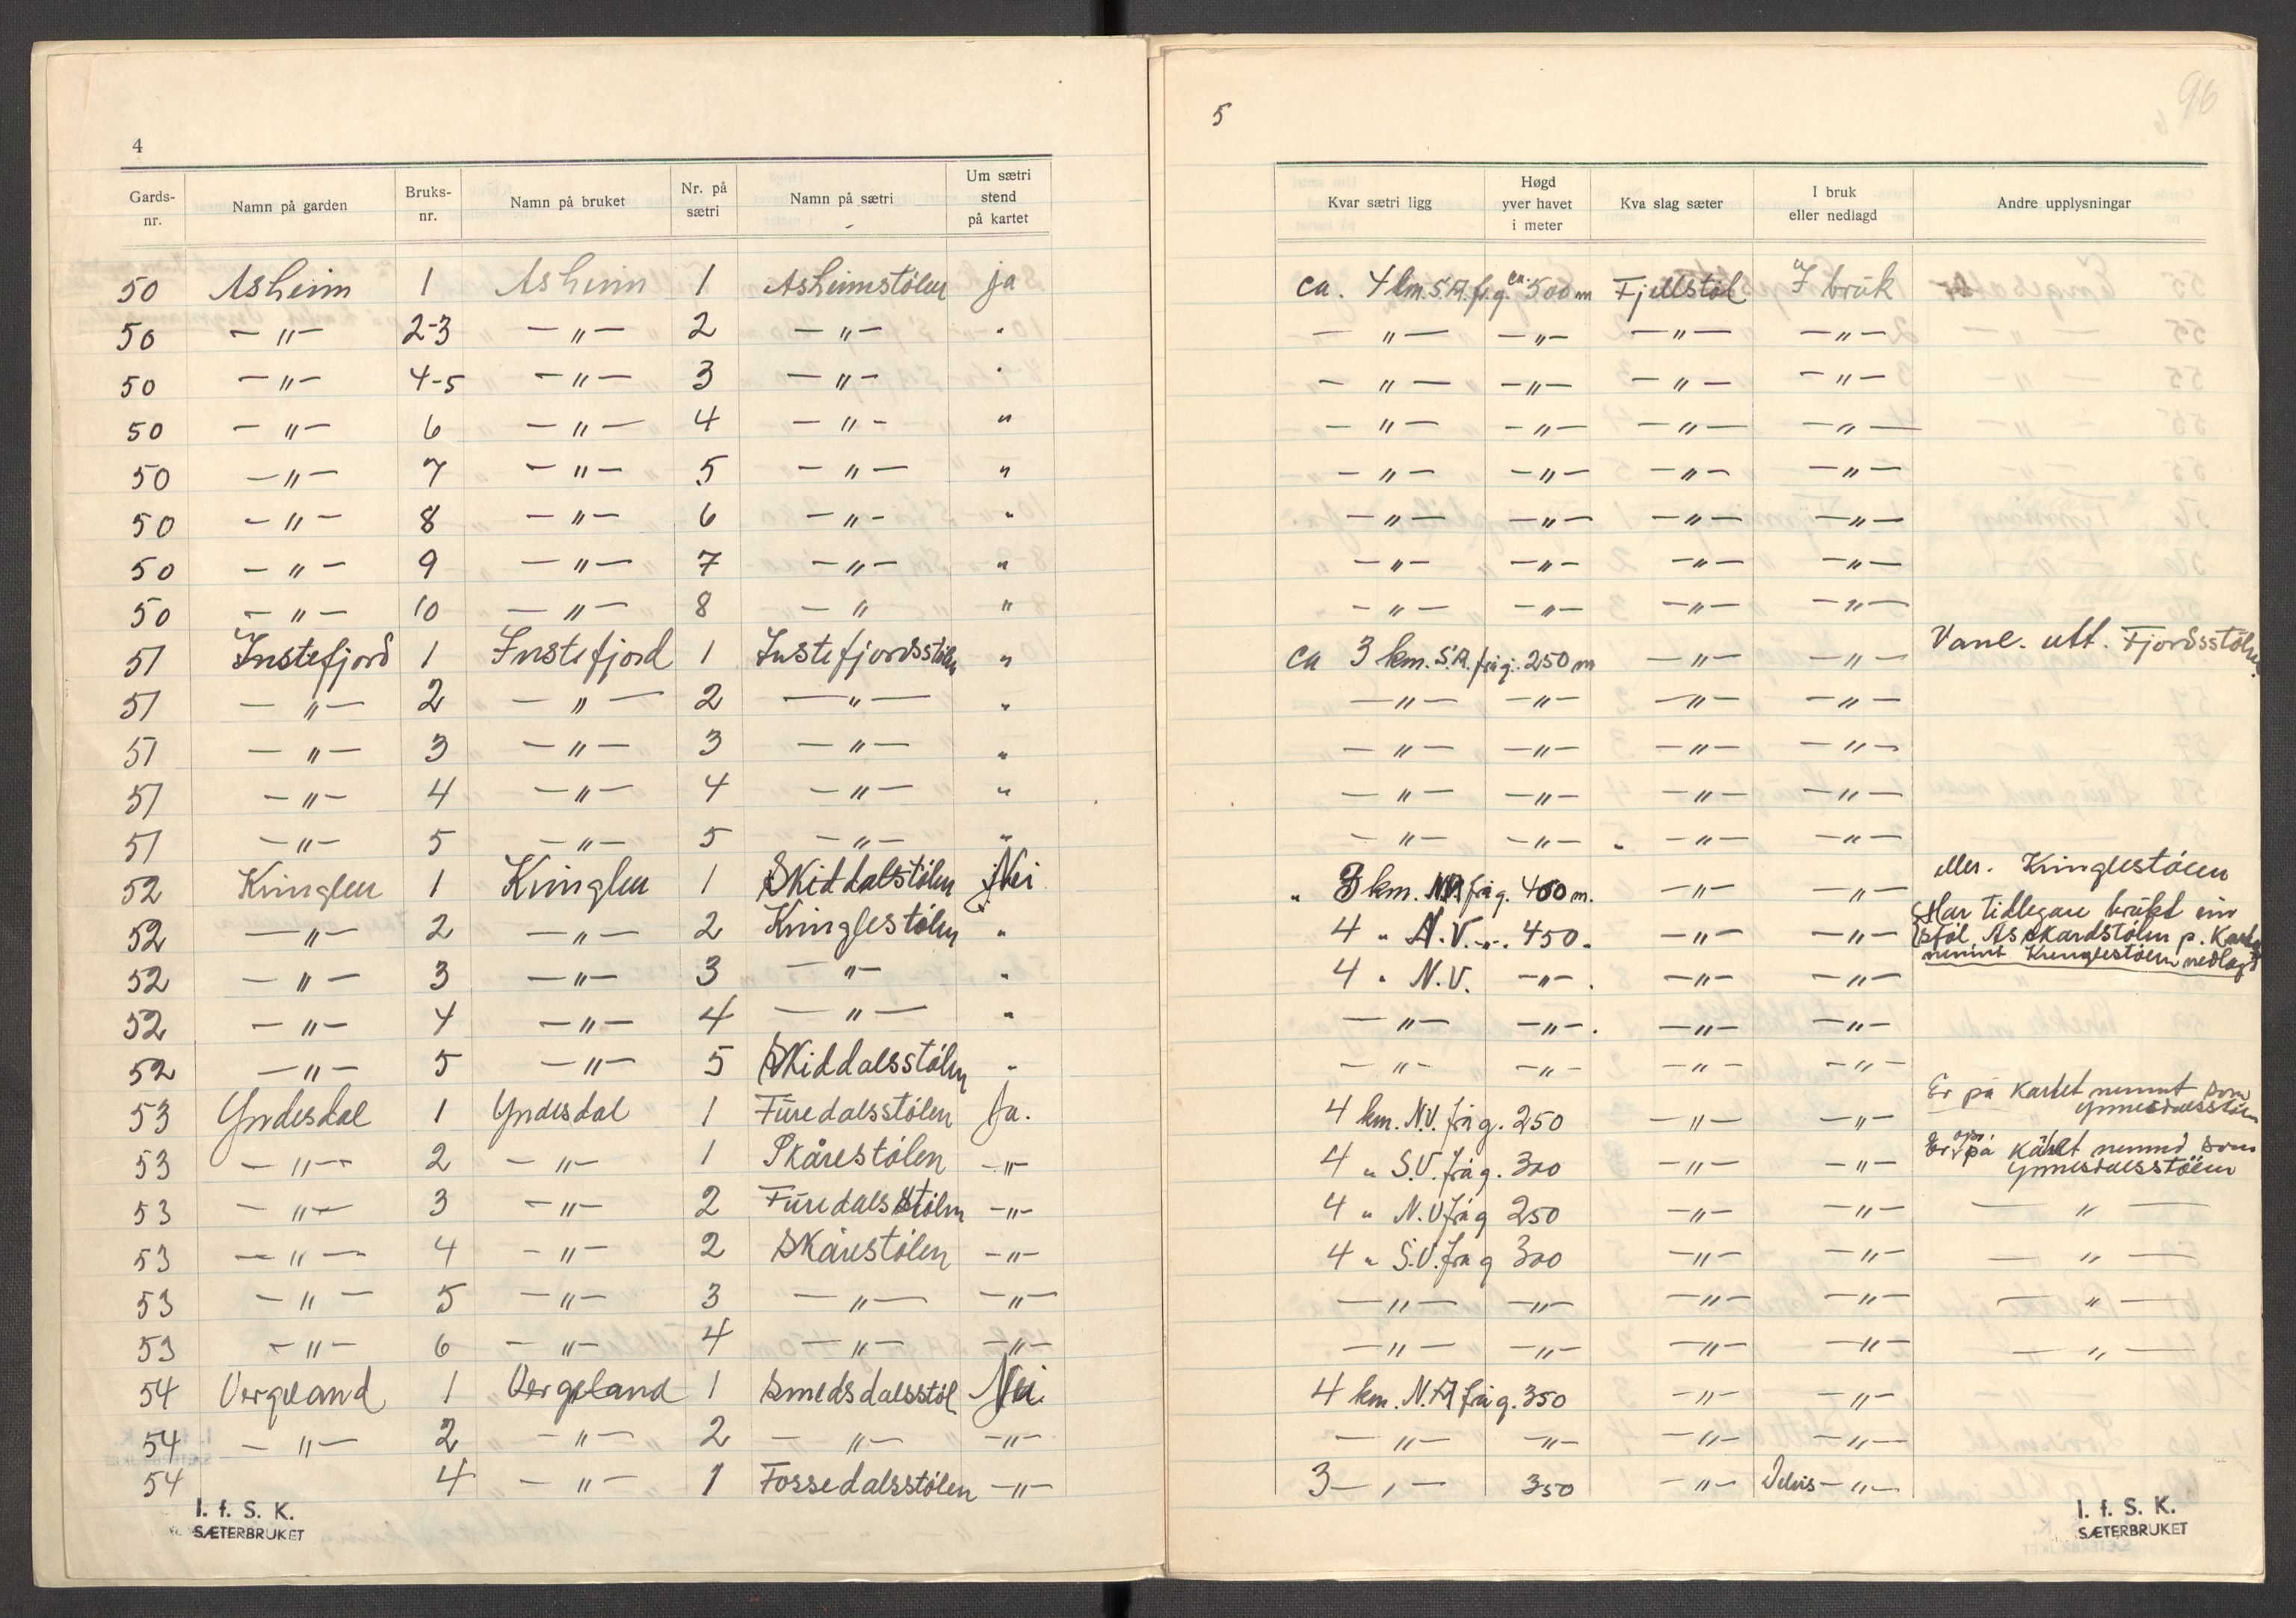 4
Gards-nr. Namn på garden Bruks-nr. Namn på bruket Nr. på sætri Namn på sætri Um sætri stend på kartet
50 Asheim 1 Asheim 1 Asheimstølen ja
50 -„- 2-3 -„- 2 -„- „
50 -„- 4-5 -„- 3 -„- „
50 -„- 6 -„- 4 -„- „
50 -„- 7 -„- 5 -„- „
50 -„- 8 -„- 6 -„- „
50 -„- 9 -„- 7 -„- „
50 -„- 10 -„- 8 -„ „
51 Instefjord 1 Instefjord 1 Instefjordsstølen „
51 -„- 2 -„- 2 -„- „
51 -„- 3 -„- 3 -„- „
51 -„- 4 -„- 4 -„- „
51 -„- 5 -„- 5 -„- „
52 Kringlen 1 Kringlen 1 Skiddalstølen Nei
52 -„- 2 -„- 2 Kringlestølen „
52 -„- 3 -„- 3 -„- „
52 -„- 4 -„- 4 -„- „
52 -„- 5 -„- 5 Skiddalsstølen „
53 Yndesdal 1 Yndesdal 1 Furedalsstølen Ja.
53 -„- 2 -„- 1 Skårestølen -„-
53 -„- 3 -„- 2 Furedalsstølen -„-
53 -„- 4 -„- 2 Skårestølen -„-
53 -„- 5 -„- 3 -„- -„-
53 -„- 6 -„- 4 -„- -„-
54 Vergeland 1 Vergeland 1 Smedsdalsstøl Nei
54 -„- 2 -„- 2 -„- -„-
54 4 -„- 1 Fossedalsstølen -„-
I. f. S. K.
SÆTERBRUKET
96
5
Kvar sætri ligg Høgd yver havet i meter Kva slag sæter I bruk eller nedlagd Andre upplysningar
ca. 4 km. S.A. fr. g. ca. 500 m Fjellstøl I bruk
-„- -„- -„- -„-
-„- -„- -„- -„-
-„- -„- -„- -„-
-„- -„- -„- -„-
-„- -„- -„- -„-
-„- -„- -„- -„-
-„- -„- -„- -„-
ca 3 km. S.A. frå g. 250 m -„- -„- Vanl. utt. Fjordsstølen
-„- -„- -„- -„-
-„- -„- -„- -„-
-„- -„- -„- -„-
-„- -„- -„- -„-
„ 3 km. N.A frå g. 400 m. -„- -„- eller. Kringlestølen
4 „ N.V. -„- 450. -„- -„- Har tidlegare brukt ein
støl, Asskardstølen p. Kartet
nemnt Kringlestølen nedlagd
4 „ N.V. -„- -„- -„-
-„- -„- -„- -„-
-„- -„- -„- -„-
4 km. N.V. frå g. 250 -„- -„- Er på Kartet nemnt som
Ynnesdalsstølen
4 „ S.V. frå g. 300 -„- -„- Er ogs. på Kartet nemnd som
Ynnesdalsstølen
4 „ N.V frå g 250 -„- -„- -„-
4 „ S.V. frå g 300 -„- -„- -„-
-„- -„- -„- -„- -„-
-„- -„- -„- -„- -„-
4 km. N.A frå g. 350 -„- -„-
-„- -„- -„- -„-
3 -„- 350 -„- Delvis -„-
I. f. S. K.
SÆTERBRUKET